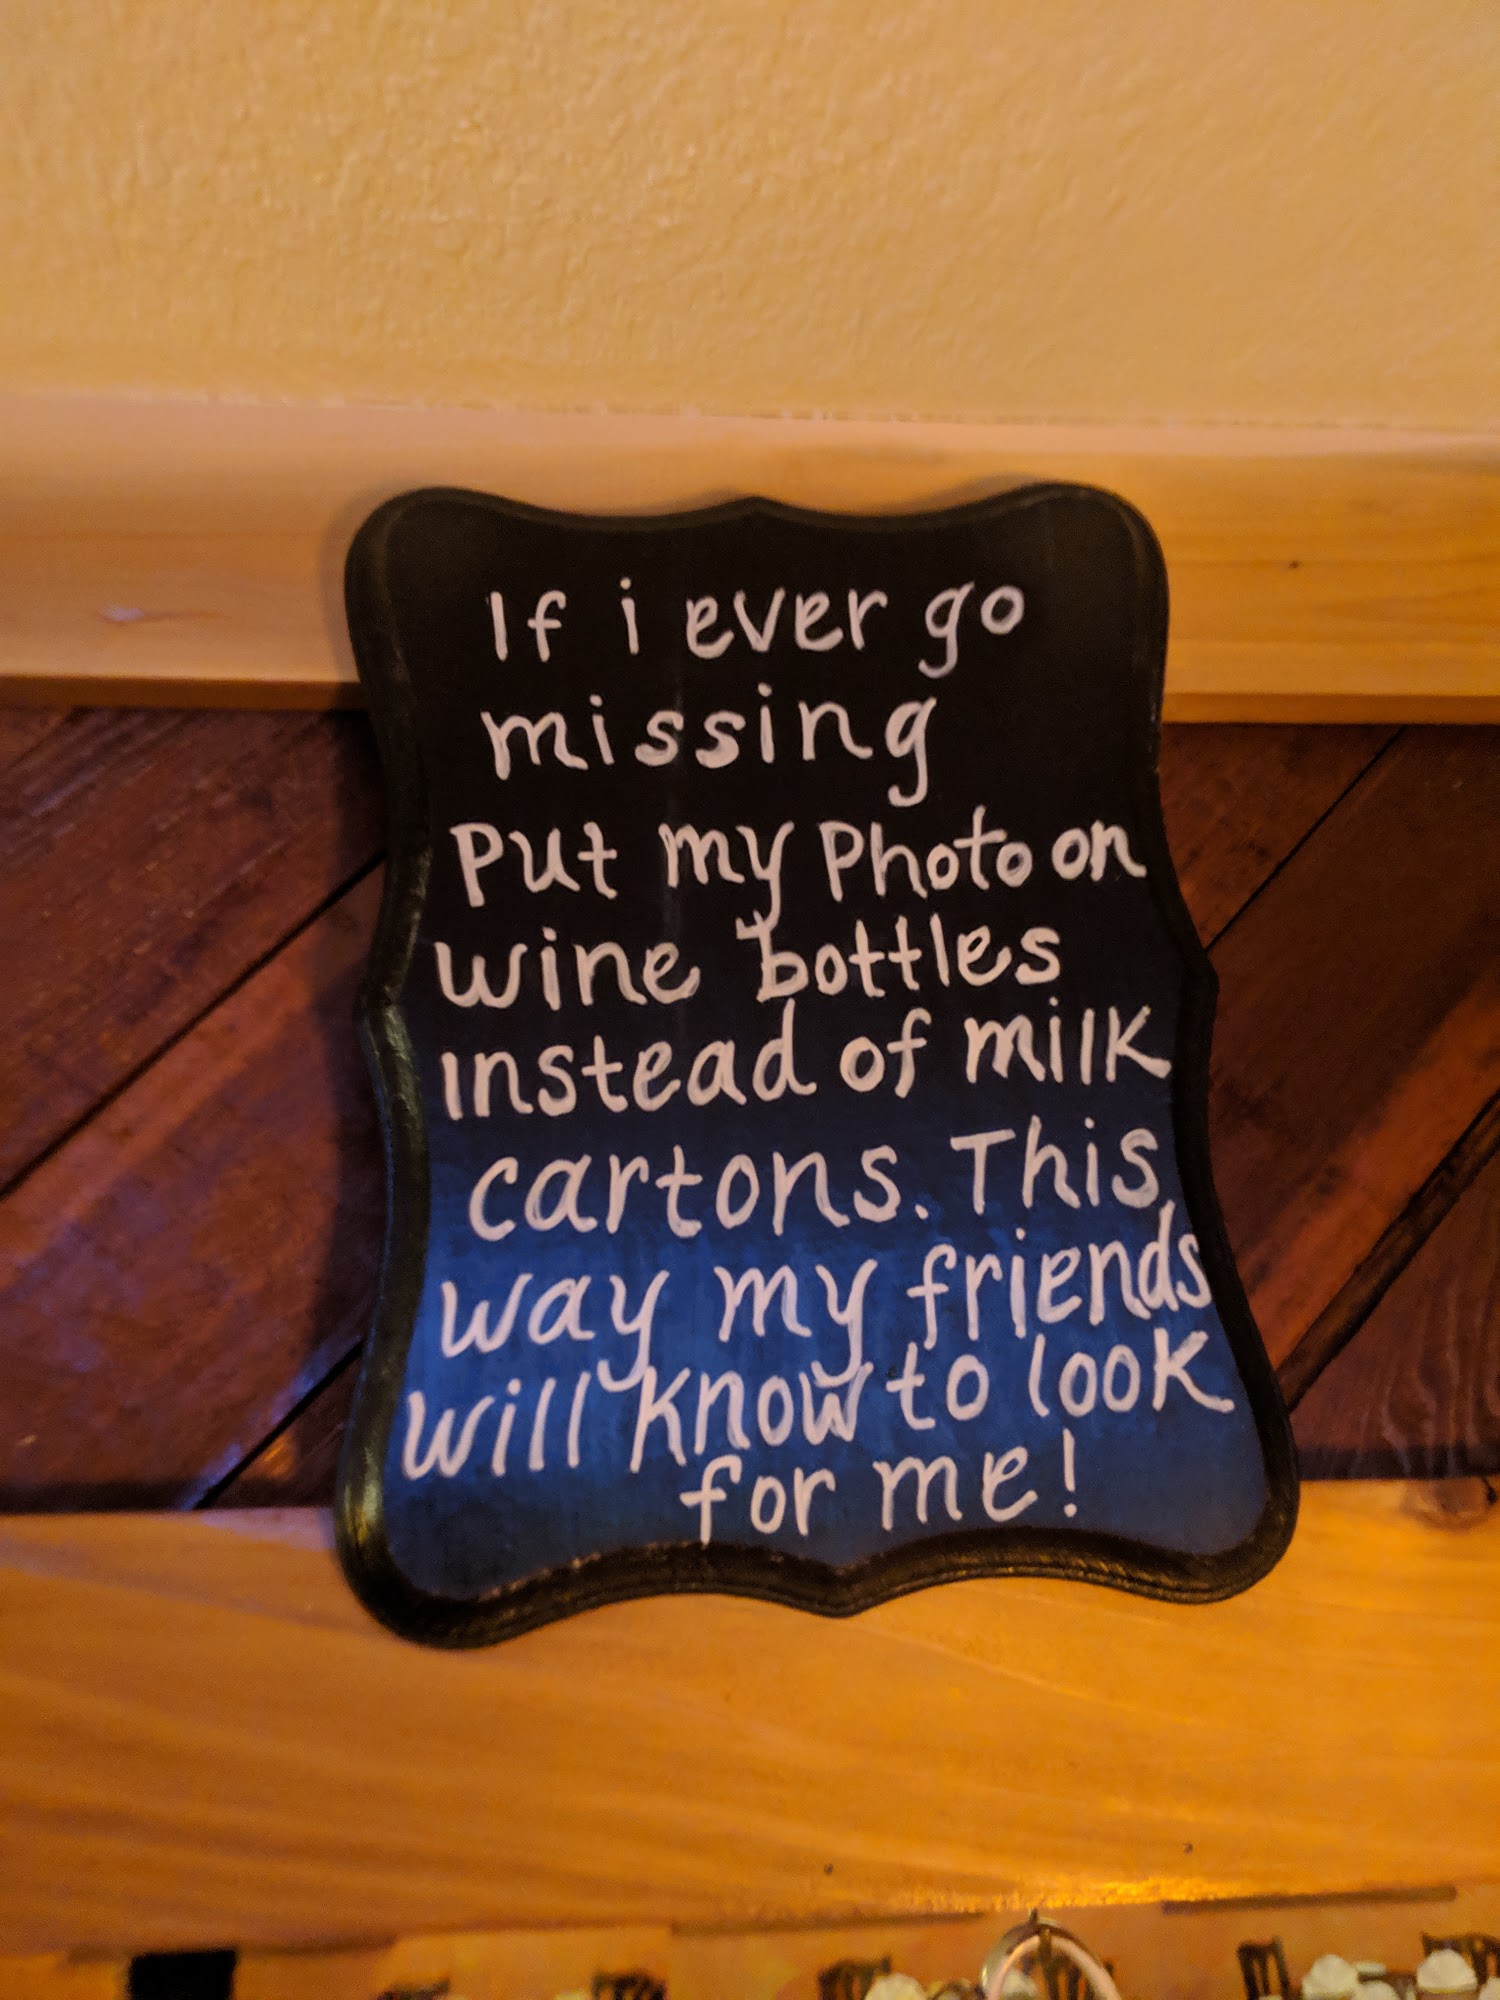 If i ever go
missing
Put my Photo on
wine bottles
instead of milk
cartons. This
way my friends
will know to look
for me!